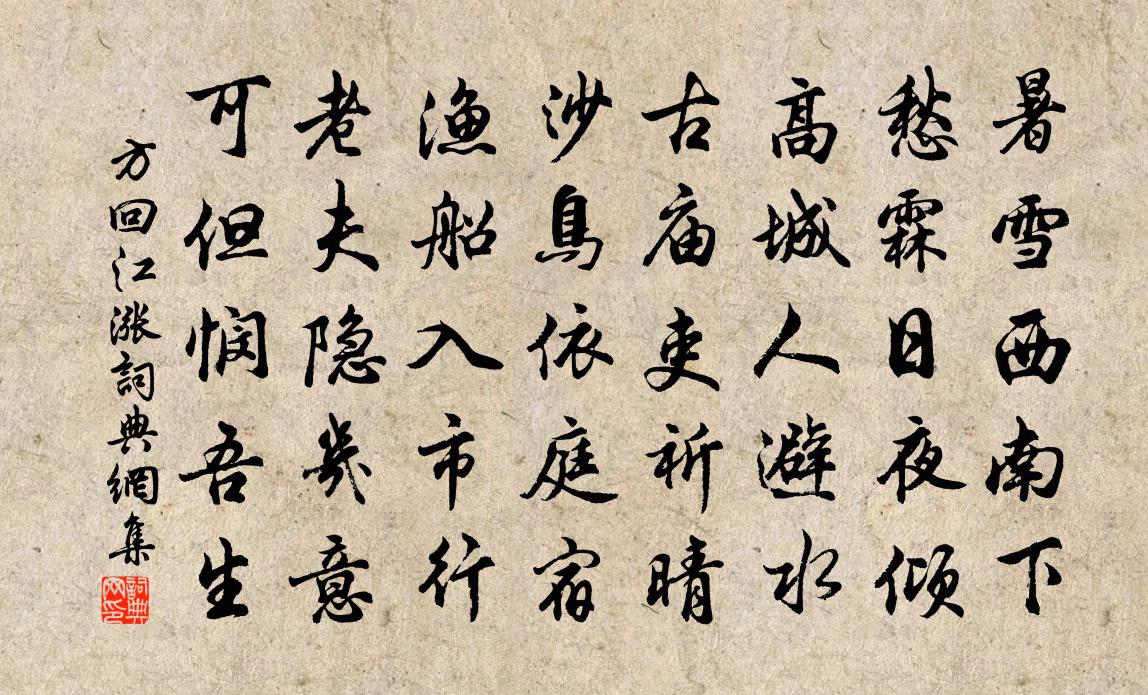 暑雪西南下
愁霖日夜倾
高城人避水
古庙吏祈晴
沙鳥依庭宿
渔船入市行
老夫隐几意
可但悯吾生
方回江漲詞典網集
詞典网印